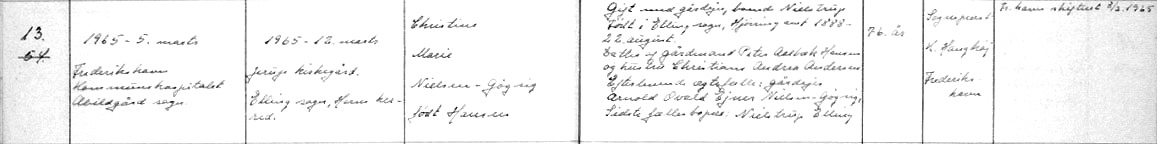 13.
54.
1965 - 5. marts
Frederikshavn
Kommunehospitalet
Abildgård sogn.
1965 - 12. marts
Jerup kirkegård.
Elling sogn, Horns her-
red.
Christine
Marie
Nielsen - Gøgsig
født Hansen
Gift med gårdejer, boende Nielstrup
Født i Elling sogn, Hjørring amt 1888-
22. august.
Datter af gårdmand Peter Aalbæk Hansen
og hustru Christiane Andrea Andersen.
Efterlevende ægtefælle: gårdejer
Arnold Osvald Ejner Nielsen-Gøgsig.
Sidste fælles bopæl: Nielstrup Elling
76 år
Sognepræst
K.
Frederiks-
havn
skifteret 8/3. 1965